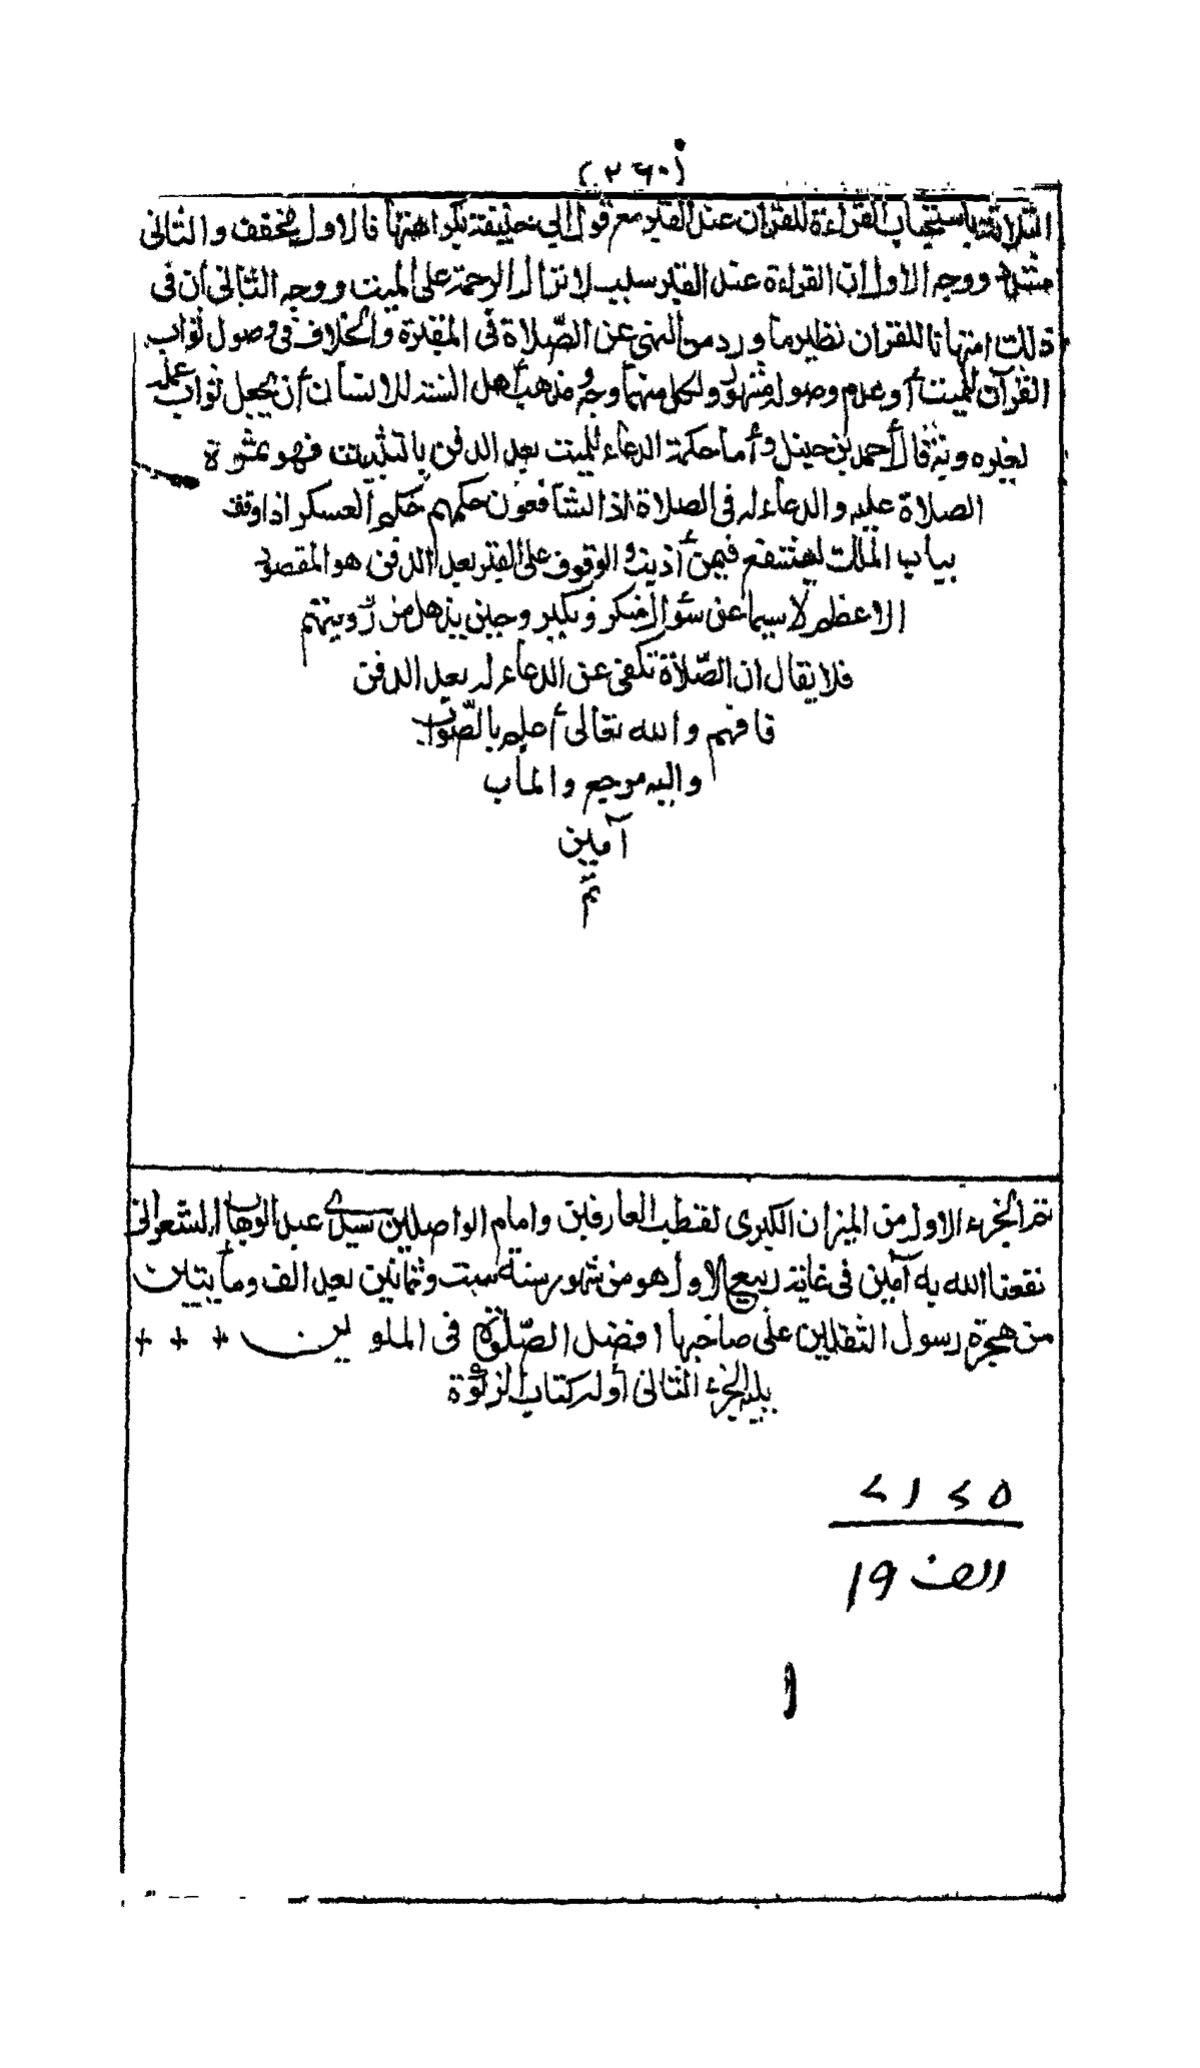 (٢٦٠)
الثلاثة باستحباب القراءة للقرآن عند القبر مع قول أبي حنيفة بكراهتها فالاول مخفف والثاني
مشدد ووجه الاول ان القراءة عند القبر سبب لانزال الرحمة على الميت ووجه الثاني أن في
ذلك امتهانا للقران نظير ما ورد من النهي عن الصّلاة في المقبرة والخلاف في وصول ثواب
القرآن للميت أو عدم وصوله مشهور ولكل منهما وجه ومذهب أهل السنة للانسان أن يجعل ثواب عمله
لغيره وبه قال أحمد بن حنبل وأما حكمة الدعاء للميت بعد الدفن بالتثبيت فهو بمثرة
الصلاة عليه والدعاء له في الصلاة اذ الشافعون حكمهم حكم العسكر اذا وقف
بباب الملك ليشفع فيمن أذنب والوقوف على القبر بعد الدفن هو المقصود
الاعظم لا سيما عن سؤال منكر ونكير وحين يذهل من رؤيتهم
فلا يقال ان الصّلاة تكفي عن الدعاء له بعد الدفن
فافهم والله تعالى أعلم بالصّواب
واليه مرجع والمآب
آمين
تم
تم الجزء الاول من الميزان الكبرى لقطب العارفين وامام الواصلين سيدى عبد الوهاب الشعرانى
نفعنا الله به آمين في غاية ربيع الاول هو من شهور سنة ست وثمانين بعد الف ومايتين
من هجرة رسول الثقلين على صاحبها افضل الصّلوٰة في الملوين + + +
يليه الجزء الثانى أوله كتاب الزكوٰة
٢١٢٥
الف ١٩